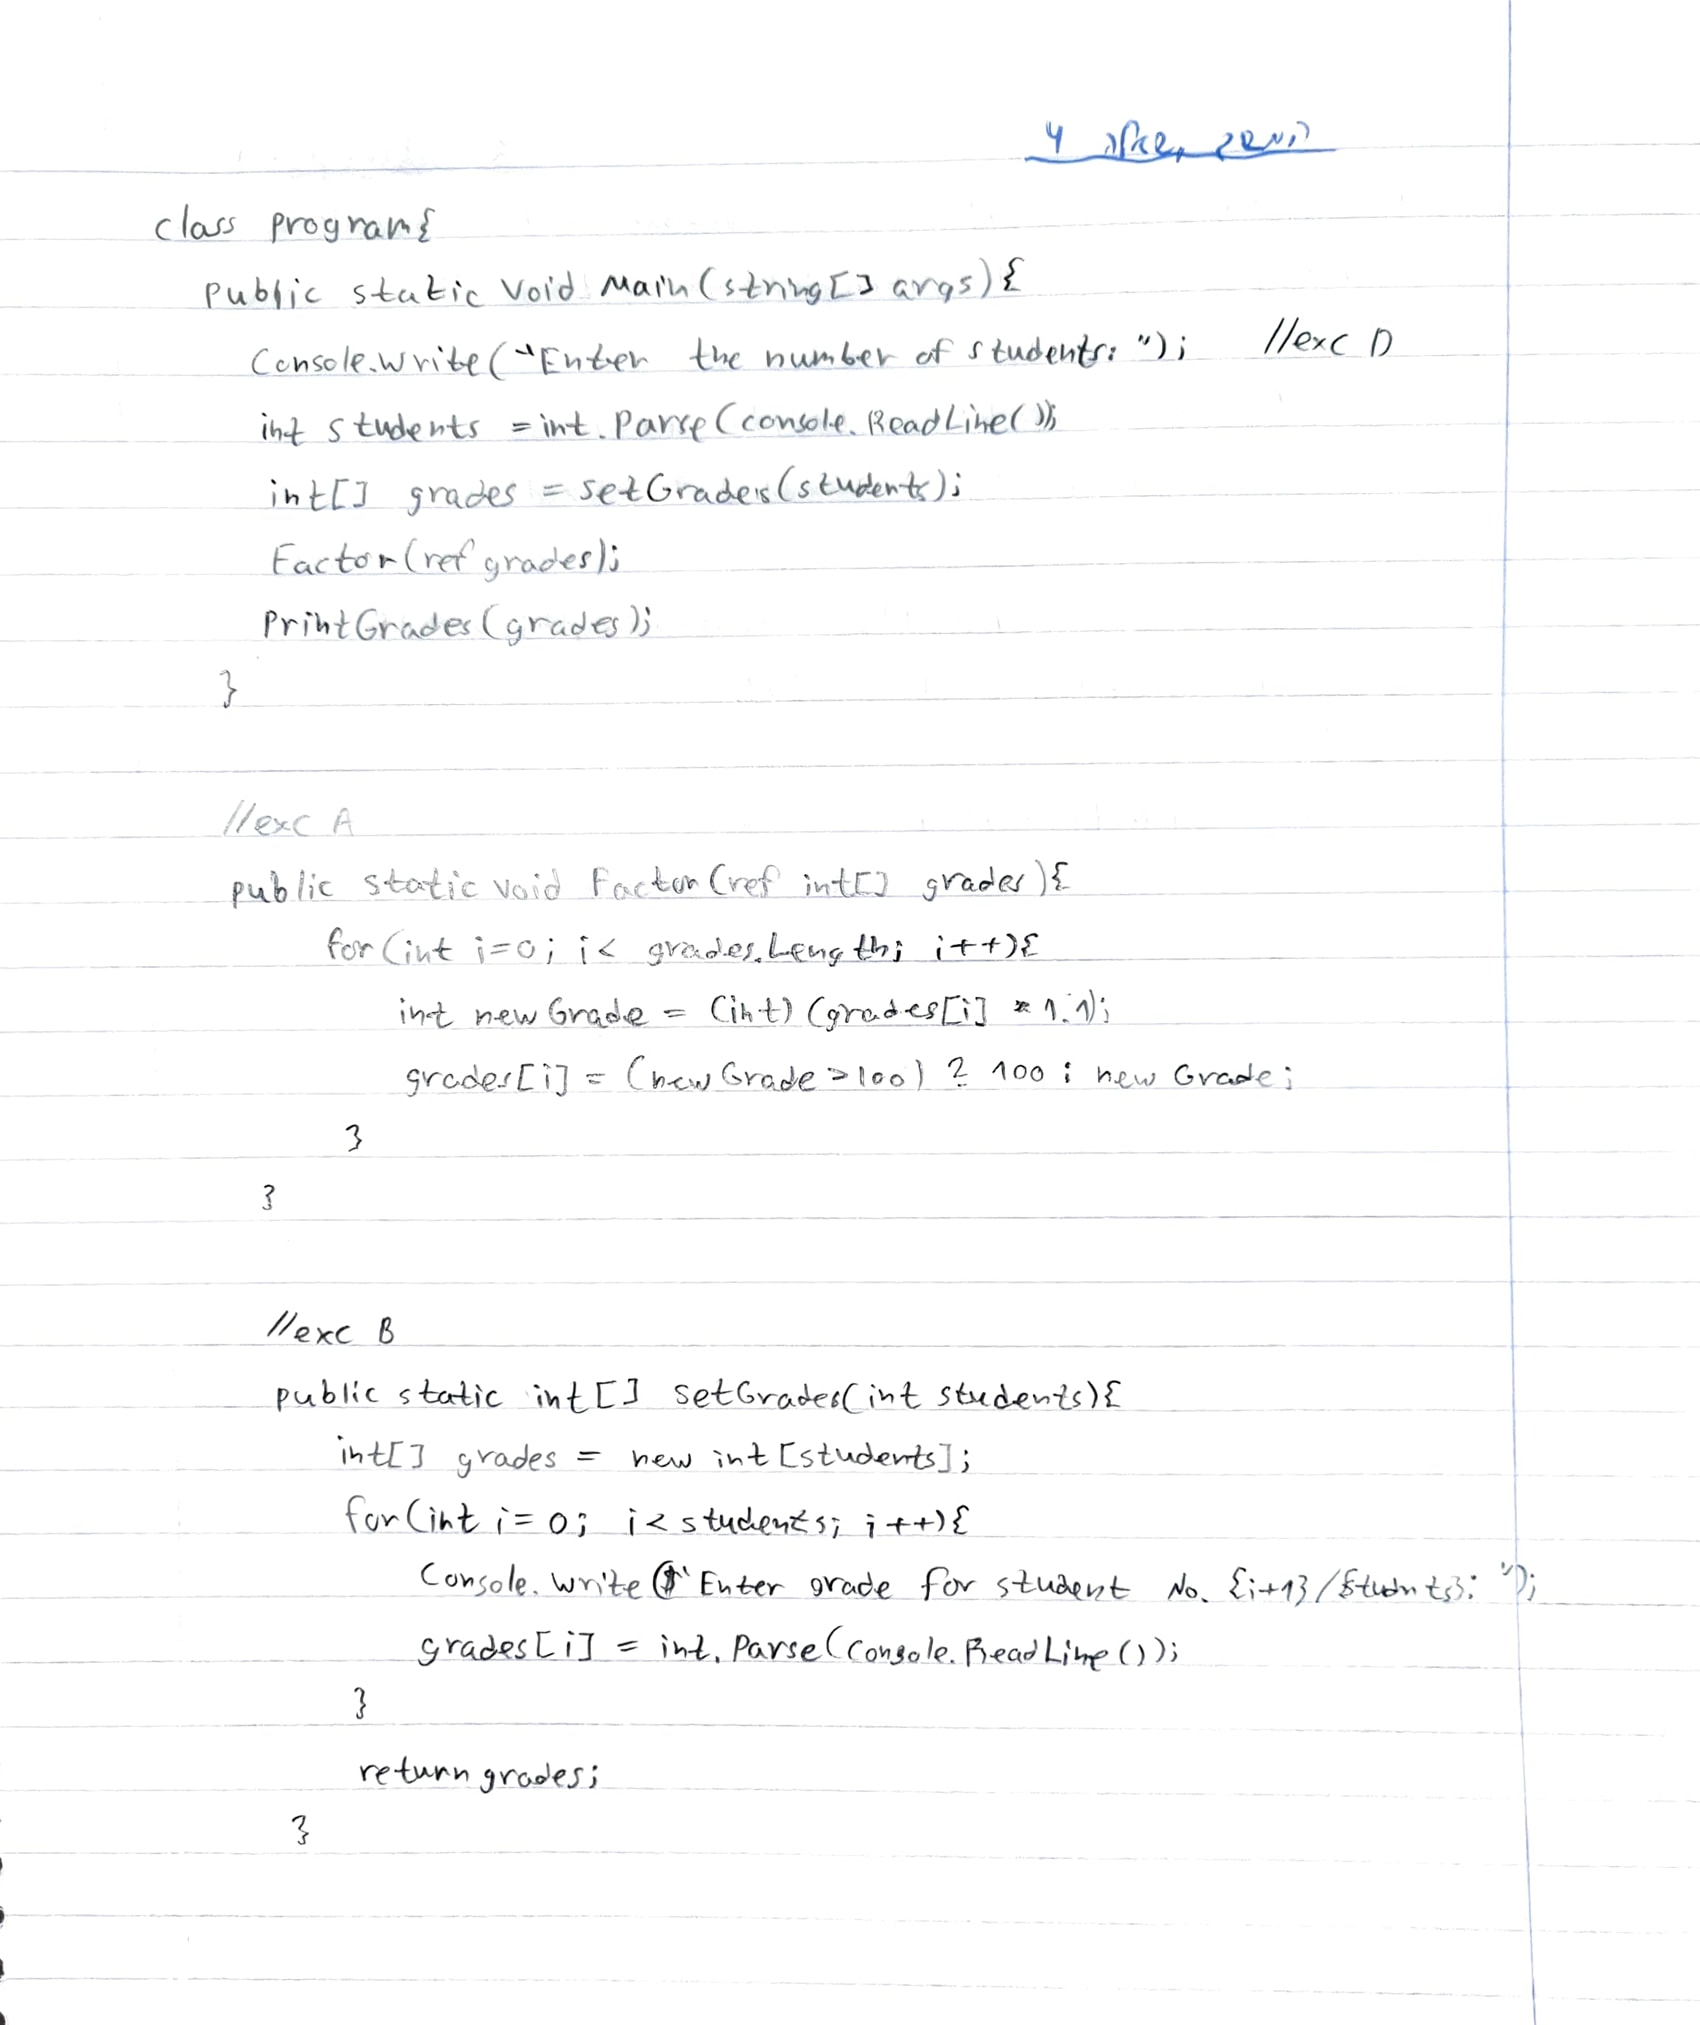 class program{
public static void Main(string[] args){
Console.write("Enter the number of students: "); //exc D
int students = int.Parse(console.ReadLine());
int[] grades = setGrades(students);
Factor(ref grades);
PrintGrades(grades);
}
//exc A
public static void Factor(ref int[] grades){
for(int i=0; i< grades.Length; i++){
int newGrade = (int)(grades[i] * 1.1);
grades[i] = (newGrade >100) ? 100 : newGrade;
}
}
//exc B
public static int[] setGrades(int students){
int[] grades = new int[students];
for(int i=0; i<students; i++){
Console.write($"Enter grade for student No. {i+1}/{studnts}: ");
grades[i] = int.Parse(Console.ReadLine());
}
return grades;
}